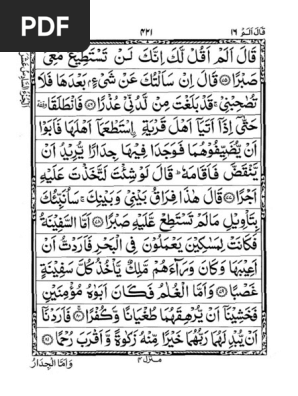 PDF
قَالَ اَلَمْ ١٦
٤٢١
قَالَ اَلَمْ اَقُلْ لَّكَ اِنَّكَ لَنْ تَسْتَطِيْعَ مَعِىَ
صَبْرًا ۝ قَالَ اِنْ سَاَلْتُكَ عَنْ شَىْءٍۢ بَعْدَهَا فَلَا
تُصٰحِبْنِىْ ۚ قَدْ بَلَغْتَ مِنْ لَّدُنِّىْ عُذْرًا ۝ فَانْطَلَقَا
حَتّٰۤى اِذَاۤ اَتَيَاۤ اَهْلَ قَرْيَةِ ِۨاسْتَطْعَمَاۤ اَهْلَهَا فَاَبَوْا
اَنْ يُّضَيِّفُوْهُمَا فَوَجَدَا فِيْهَا جِدَارًا يُّرِيْدُ اَنْ
يَّنْقَضَّ فَاَقَامَهٗ ؕ قَالَ لَوْ شِئْتَ لَتَّخَذْتَ عَلَيْهِ
اَجْرًا ۝ قَالَ هٰذَا فِرَاقُ بَيْنِىْ وَبَيْنِكَ ۚ سَاُنَبِّئُكَ
بِتَاْوِيْلِ مَا لَمْ تَسْتَطِعْ عَّلَيْهِ صَبْرًا ۝ اَمَّا السَّفِيْنَةُ
فَكَانَتْ لِمَسٰكِيْنَ يَعْمَلُوْنَ فِى الْبَحْرِ فَاَرَدْتُّ اَنْ
اَعِيْبَهَا وَكَانَ وَرَآءَهُمْ مَّلِكٌ يَّاْخُذُ كُلَّ سَفِيْنَةٍ
غَصْبًا ۝ وَاَمَّا الْغُلٰمُ فَكَانَ اَبَوٰهُ مُؤْمِنَيْنِ
فَخَشِيْنَاۤ اَنْ يُّرْهِقَهُمَا طُغْيَانًا وَّكُفْرًا ۝ فَاَرَدْنَاۤ
اَنْ يُّبْدِلَهُمَا رَبُّهُمَا خَيْرًا مِّنْهُ زَكٰوةً وَّاَقْرَبَ رُحْمًا ۝
منزل ٤
وَاَمَّا الْجِدَارُ